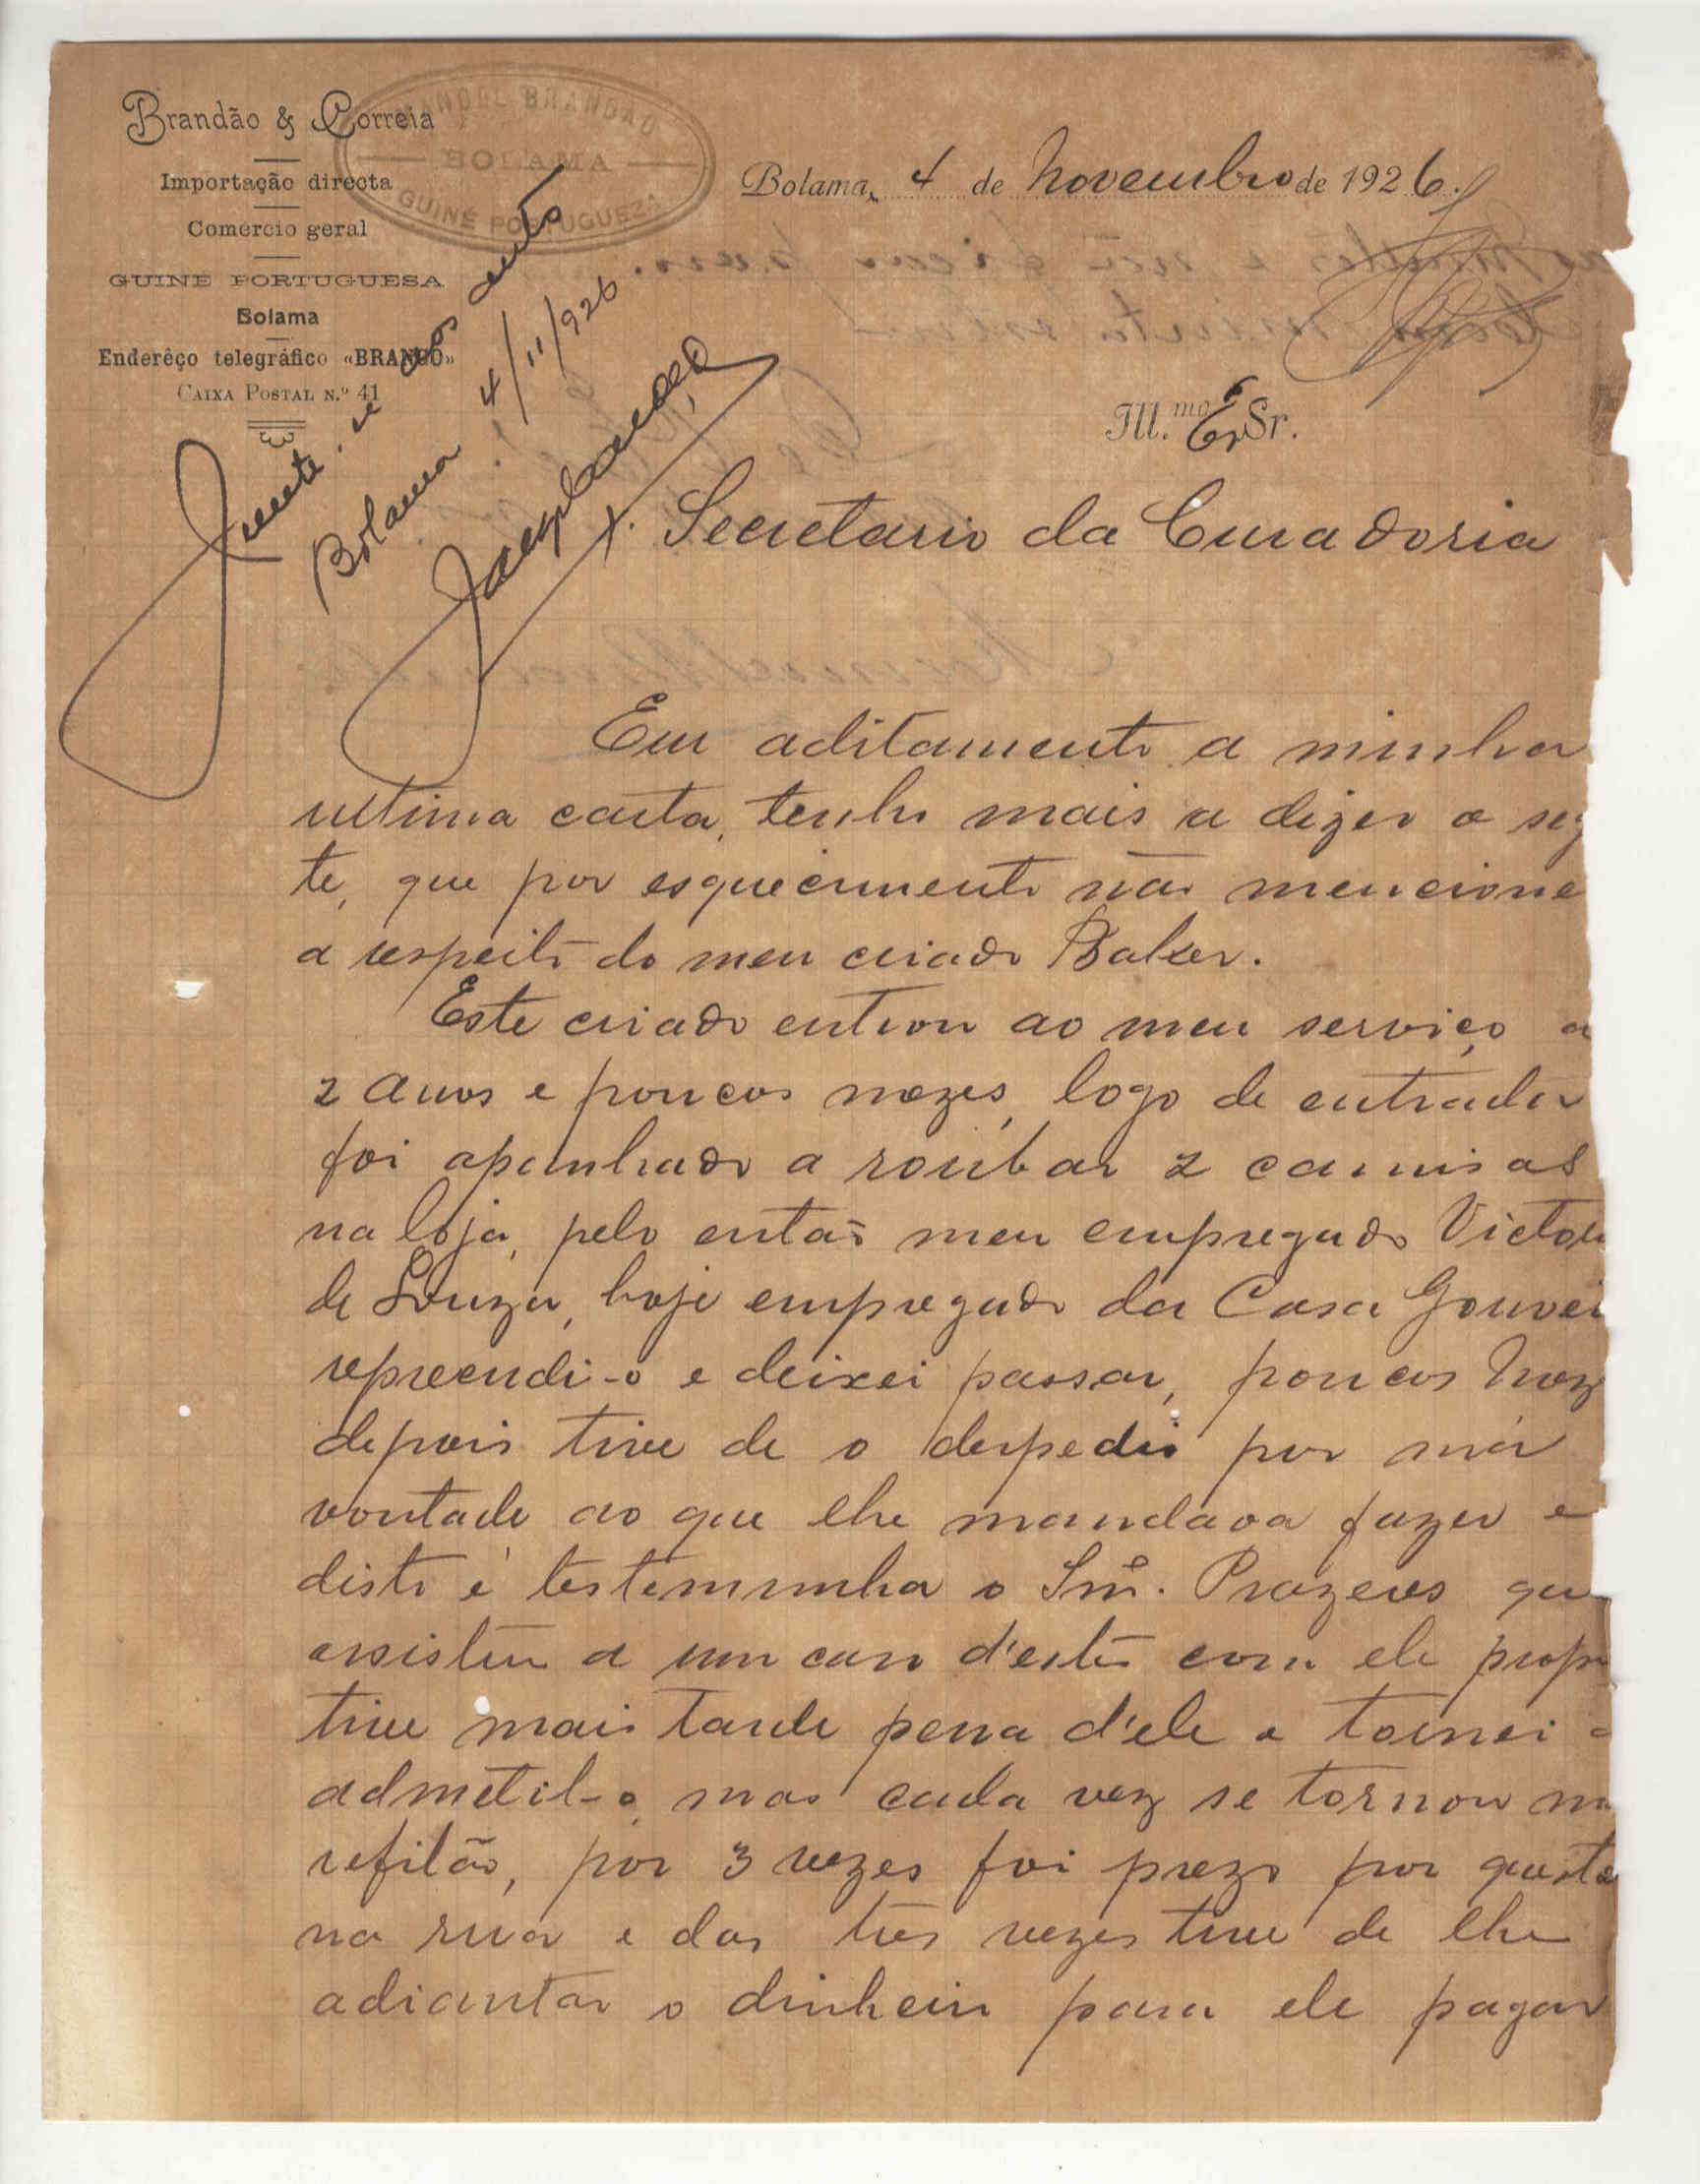 Brandão & Correia
Importação directa
Comercio geral
GUINÉ PORTUGUESA
Bolama
Enderêço telegráfico «BRANDO»
CAIXA POSTAL N.º 41
MANOEL BRANDÃO
BOLAMA
GUINÉ PORTUGUEZA
Bolama, 4 de Novembro de 1926.
Junte-se aos autos
Bolama 4/11/926
Ill.mo Ex Sr.
Secretario da Curadoria
Em aditamento a minha
ultima carta, tenho mais a dizer o seg
te, que por esquecimento não mencione
a respeito do meu criado Baker.
Este criado entrou ao meu serviço a
2 anos e poucos mezes, logo de entrada
foi apanhado a roubar 2 camisas
na loja, pelo então meu empregado Victor
de Souza, hoje empregado da Casa Gouvei
repreendi-o e deixei passar, poucos mez
depois tive de o despedir por má
vontade ao que lhe mandava fazer e
disto é testemunha o Snr. Prazeres que
assistiu a um caso d'estes com ele propr
tive mais tarde pena d'ele e tornei a
admetil-o, mas cada vez se tornou ma
refilão, por 3 vezes foi prezo por questo
na rua e das tres vezes tive de lhe
adiantar o dinheiro para ele pagar